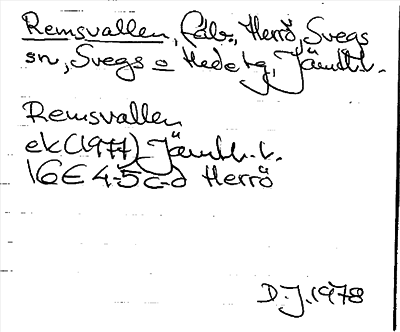 Remsvallen, fäb., Herrö, Svegs
sn, Svegs o Hede tg, Jämtl.l.
Remsvallen
ek(1977) Jämtl.l.
16E 4-5 c-d Herrö
D.J. 1978